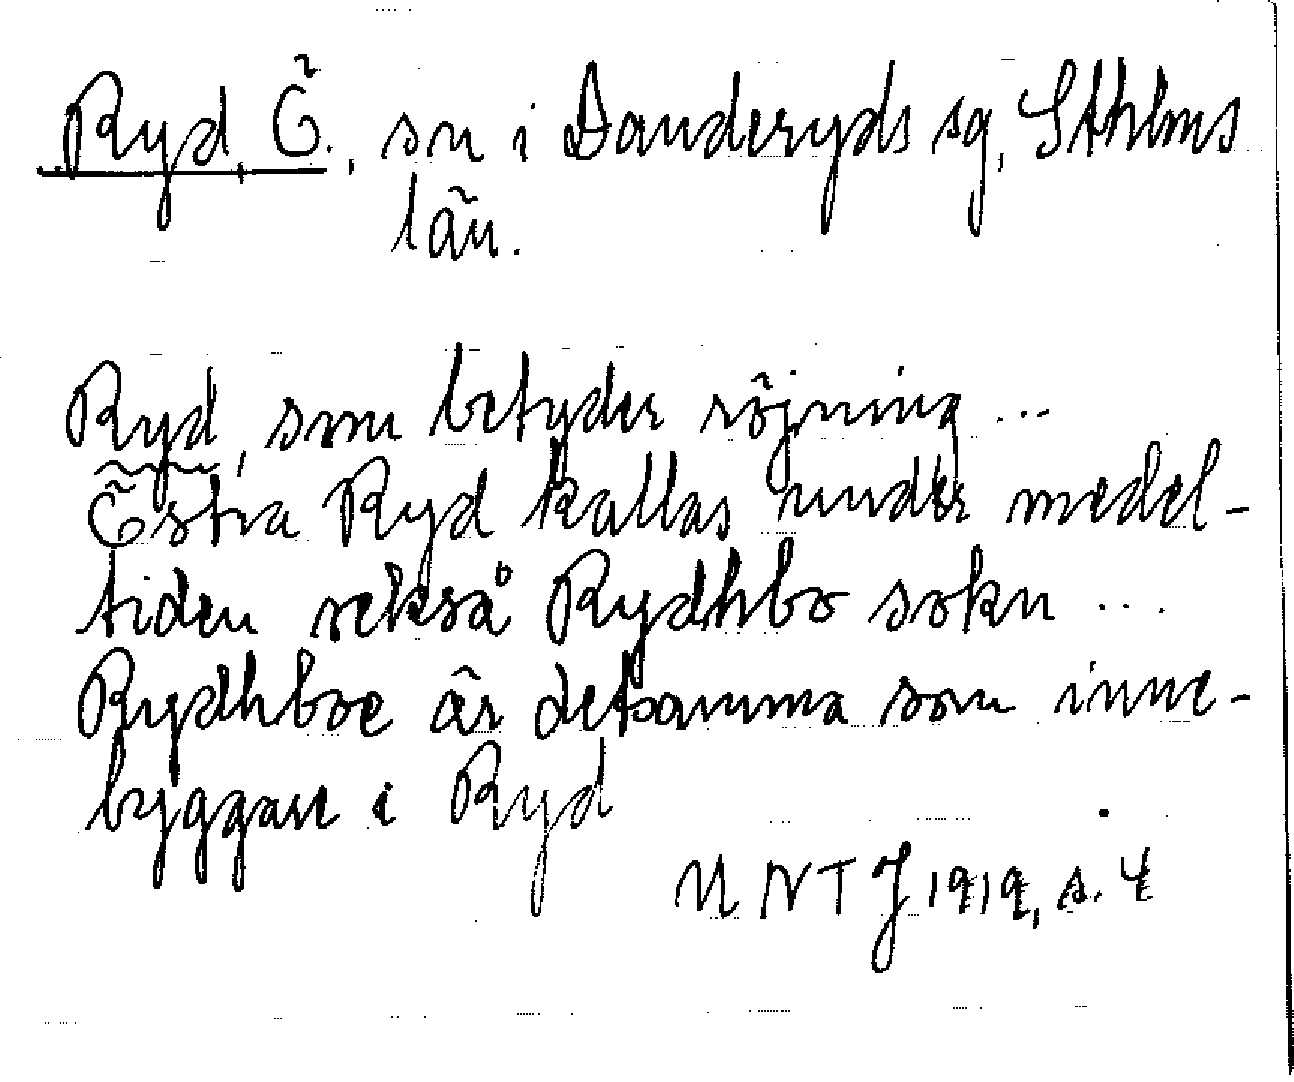 Ryd, Ö., sn i Danderyds sg, Sthlms
län.
Ryd, som betyder röjning ...
Östra Ryd kallas under medel-
tiden också Rydhbo sokn ...
Rydhboe är detsamma som inne-
byggare i Ryd
UNTJ 1919, s. 4